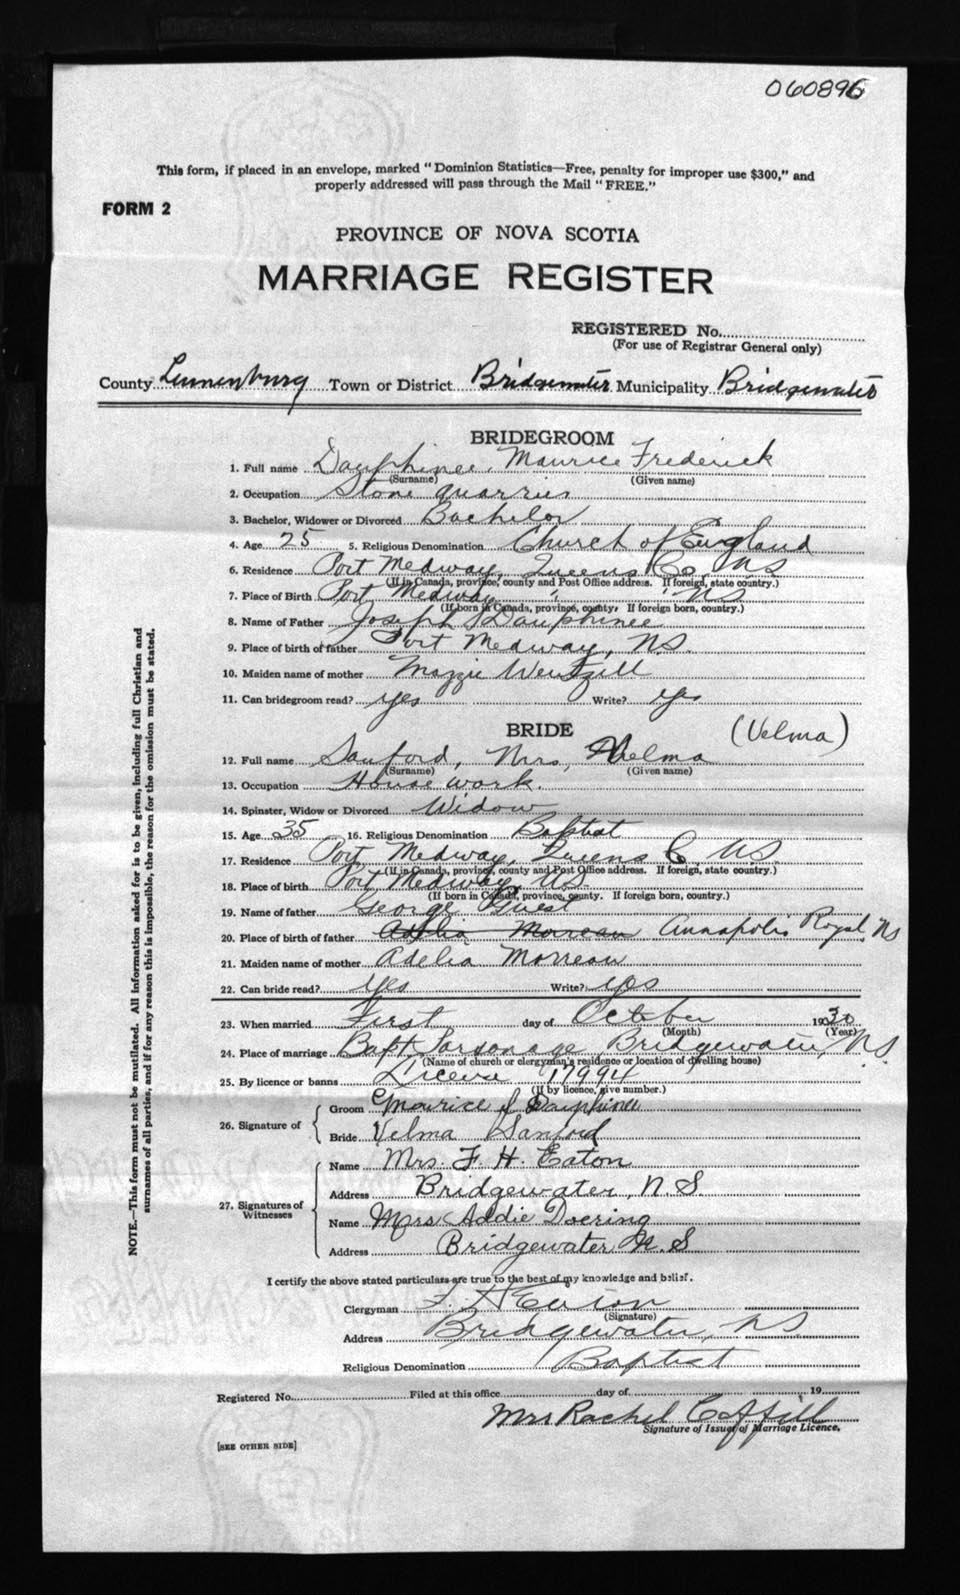 060896
This form, if placed in an envelope, marked "Dominion Statistics—Free, penalty for improper use $300," and
properly addressed will pass through the Mail "FREE."
FORM 2
PROVINCE OF NOVA SCOTIA
MARRIAGE REGISTER
REGISTERED No.
(For use of Registrar General only)
County Lunenburg Town or District Bridgewater Municipality Bridgewater
BRIDEGROOM
1. Full name Dauphinee, Maurice Frederick
(Surname) (Given name)
2. Occupation Stone quarries
3. Bachelor, Widower or Divorced Bachelor
4. Age 25 5. Religious Denomination Church of England
6. Residence Port Medway, Queens Co, NS
(If in Canada, province, county and Post Office address. If foreign, state country.)
7. Place of Birth Port Medway " NS
(If born in Canada, province, county. If foreign born, country.)
8. Name of Father Joseph Dauphinee
9. Place of birth of father Port Medway, NS.
10. Maiden name of mother Mazzie Wentzell
11. Can bridegroom read? yes Write? yes
BRIDE (Velma)
12. Full name Sanford, Mrs, Thelma
(Surname) (Given name)
13. Occupation House work.
14. Spinster, Widow or Divorced Widow
15. Age 35 16. Religious Denomination Baptist
17. Residence Port Medway, Queens C, NS.
(If in Canada, province, county and Post Office address. If foreign, state country.)
18. Place of birth Port Medway, NS
(If born in Canada, province, county. If foreign born, country.)
19. Name of father George Guest
20. Place of birth of father Adelia Morreau Annapolis Royal, NS
21. Maiden name of mother Adelia Morreau
22. Can bride read? yes Write? yes
23. When married First day of October 1930
(Month) (Year)
24. Place of marriage Bapt Parsonage Bridgewater, N.S.
(Name of church or clergyman's residence or location of dwelling house)
25. By licence or banns Licence 17994
(If by licence, give number.)
26. Signature of Groom Maurice F Dauphinee
Bride Velma Sanford
27. Signatures of Witnesses Name Mrs. F. H. Eaton
Address Bridgewater, N.S.
Name Mrs Addie Doering
Address Bridgewater N.S
I certify the above stated particulars are true to the best of my knowledge and belief.
Clergyman F. H Eaton
(Signature)
Address Bridgewater, NS
Religious Denomination Baptist
Registered No. Filed at this office day of 19
Mrs Rachel
Signature of Issuer of Marriage Licence.
[SEE OTHER SIDE]
NOTE.—This form must not be mutilated. All information asked for is to be given, including full Christian and
surnames of all parties, and if for any reason this is impossible, the reason for the omission must be stated.